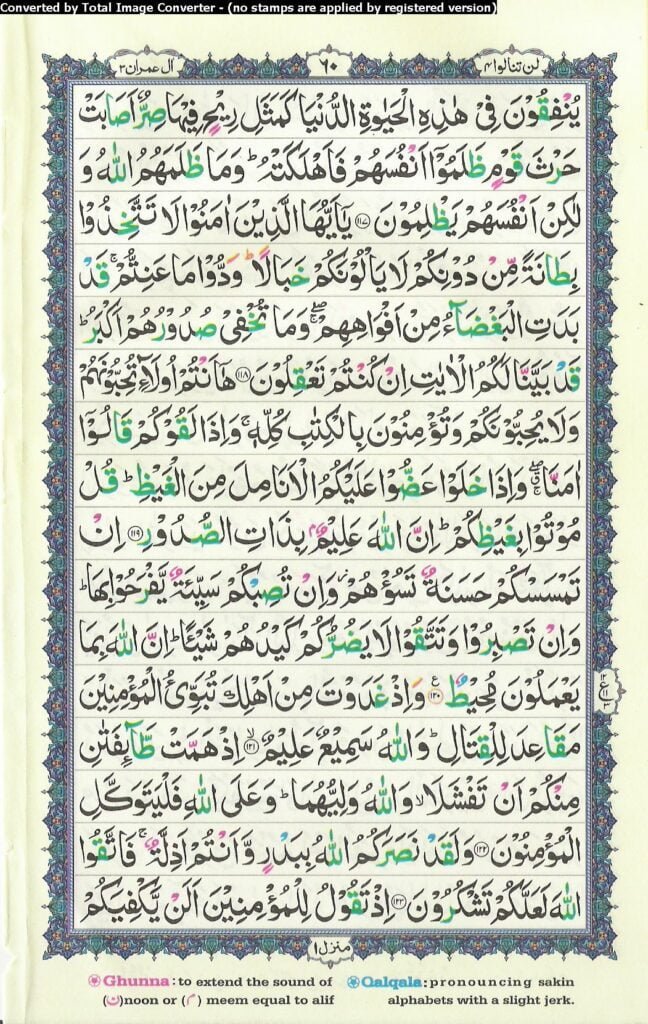 Converted by Total Image Converter - (no stamps are applied by registered version)
لن تنالوا ۴ ٦٠ اٰل عمرٰن ۳
يُنْفِقُوْنَ فِىْ هٰذِهِ الْحَيٰوةِ الدُّنْيَا كَمَثَلِ رِيْحٍ فِيْهَا صِرٌّ اَصَابَتْ
حَرْثَ قَوْمٍ ظَلَمُوْۤا اَنْفُسَهُمْ فَاَهْلَكَتْهُ ؕ وَمَا ظَلَمَهُمُ اللّٰهُ وَ
لٰكِنْ اَنْفُسَهُمْ يَظْلِمُوْنَ ﴿۱۱۷﴾ يٰۤاَيُّهَا الَّذِيْنَ اٰمَنُوْا لَا تَتَّخِذُوْا
بِطَانَةً مِّنْ دُوْنِكُمْ لَا يَاْلُوْنَكُمْ خَبَالًا ؕ وَدُّوْا مَا عَنِتُّمْ ۚ قَدْ
بَدَتِ الْبَغْضَآءُ مِنْ اَفْوَاهِهِمْ ۖۚ وَمَا تُخْفِىْ صُدُوْرُهُمْ اَكْبَرُ ؕ
قَدْ بَيَّنَّا لَكُمُ الْاٰيٰتِ اِنْ كُنْتُمْ تَعْقِلُوْنَ ﴿۱۱۸﴾ هٰۤاَنْتُمْ اُولَآءِ تُحِبُّوْنَهُمْ
وَلَا يُحِبُّوْنَكُمْ وَتُؤْمِنُوْنَ بِالْكِتٰبِ كُلِّهٖ ۚ وَاِذَا لَقُوْكُمْ قَالُوْۤا
اٰمَنَّا ۖۗۚ وَاِذَا خَلَوْا عَضُّوْا عَلَيْكُمُ الْاَنَامِلَ مِنَ الْغَيْظِ ؕ قُلْ
مُوْتُوْا بِغَيْظِكُمْ ؕ اِنَّ اللّٰهَ عَلِيْمٌۢ بِذَاتِ الصُّدُوْرِ ﴿۱۱۹﴾ اِنْ
تَمْسَسْكُمْ حَسَنَةٌ تَسُؤْهُمْ ۫ وَاِنْ تُصِبْكُمْ سَيِّئَةٌ يَّفْرَحُوْا بِهَا ؕ
وَاِنْ تَصْبِرُوْا وَتَتَّقُوْا لَا يَضُرُّكُمْ كَيْدُهُمْ شَيْـًٔا ؕ اِنَّ اللّٰهَ بِمَا
يَعْمَلُوْنَ مُحِيْطٌ ﴿۱۲۰﴾ ع وَاِذْ غَدَوْتَ مِنْ اَهْلِكَ تُبَوِّئُ الْمُؤْمِنِيْنَ
مَقَاعِدَ لِلْقِتَالِ ؕ وَاللّٰهُ سَمِيْعٌ عَلِيْمٌ ﴿۱۲۱﴾ۙ اِذْ هَمَّتْ طَّآئِفَتٰنِ
مِنْكُمْ اَنْ تَفْشَلَا ۙ وَاللّٰهُ وَلِيُّهُمَا ؕ وَعَلَى اللّٰهِ فَلْيَتَوَكَّلِ
الْمُؤْمِنُوْنَ ﴿۱۲۲﴾ وَلَقَدْ نَصَرَكُمُ اللّٰهُ بِبَدْرٍ وَّاَنْتُمْ اَذِلَّةٌ ۚ فَاتَّقُوا
اللّٰهَ لَعَلَّكُمْ تَشْكُرُوْنَ ﴿۱۲۳﴾ اِذْ تَقُوْلُ لِلْمُؤْمِنِيْنَ اَلَنْ يَّكْفِيَكُمْ
منزل ۱
Ghunna: to extend the sound of (ن) noon or (م) meem equal to alif
Qalqala: pronouncing sakin alphabets with a slight jerk.